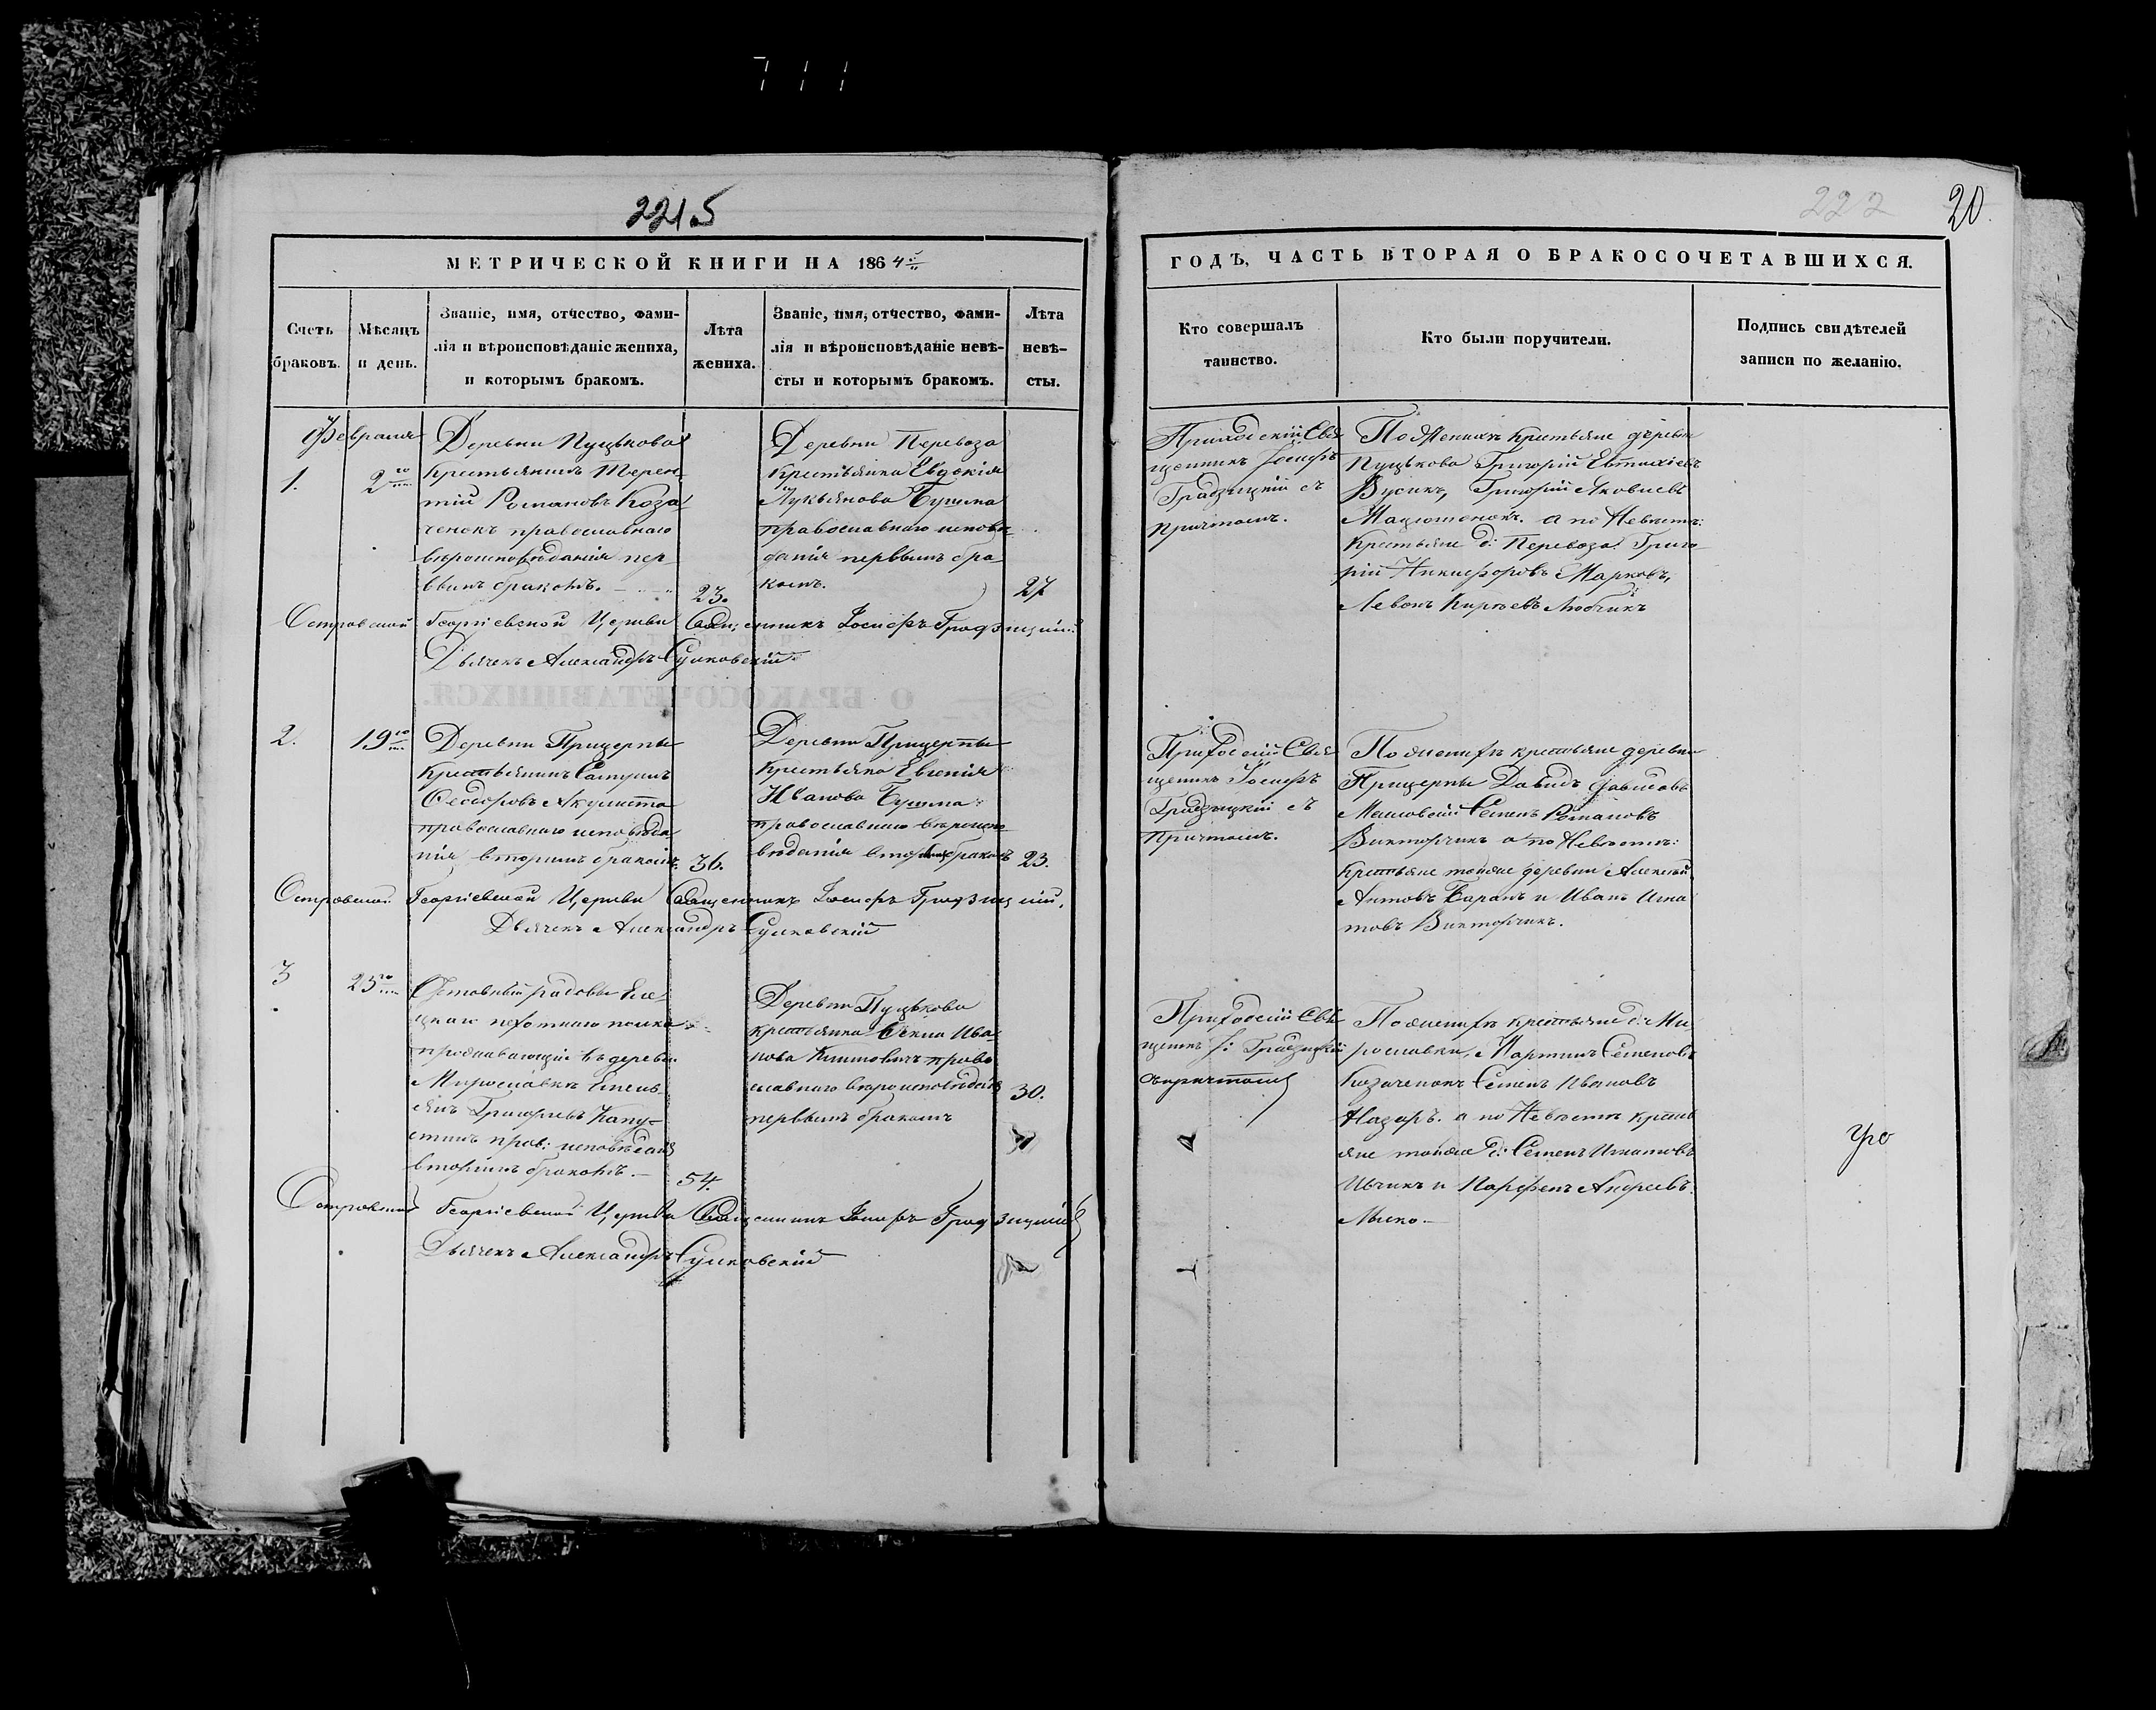 711
221 5
222
20.
МЕТРИЧЕСКОЙ КНИГИ НА 1864
ГОДЪ, ЧАСТЬ ВТОРАЯ О БРАКОСОЧЕТАВШИХСЯ.
Счетъ
браковъ.
Мѣсяцъ
и день.
Званіе, имя, отчество, фами-
лія и вѣроисповѣданіе жениха,
и которымъ бракомъ.
Лѣта
жениха.
Званіе, имя, отчество, фами-
лія и вѣроисповѣданіе невѣ-
сты и которымъ бракомъ.
Лѣта
невѣ-
сты.
Кто совершалъ
таинство.
Кто были поручители.
Подпись свидѣтелей
записи по желанію.
Февраля
1.
2го
Деревни Пуцькова
Крестьянинъ Терен-
тій Романовъ Коза-
ченокъ православнаго
вѣроисповѣданія пер
вымъ бракомъ.
23.
Деревни Перевоза
Крестьянка Евдокія
Лукьянова Бушма
православнаго исповѣ
данія первымъ бра
комъ.
27
Приходскій Свя
щенникъ Іосифъ
Градзицкій съ
причтомъ.
По Женихѣ крестьяне деревни
Пуцькова Григорій Евтихіевъ
Вусикъ, Григорій Яковлевъ
а по Невѣстѣ:
Крестьяне д: Перевоза Григо-
рій Никифоровъ Марковъ,
Левонъ Кирѣевъ
Островской Георгіевской Церкви Священникъ Іосифъ Градзицкій.
Дьячекъ Александръ Сулковскій
2.
19го
Деревни Прицерпы
Крестьянинъ
Ѳеодоровъ Акулита
православнаго исповѣда
нія вторымъ бракомъ.
36.
Деревни Прицерпы
Крестьянка Евгенія
Иванова Бушма
православнаго вѣроиспо
вѣданія вторымъ бракомъ
23.
Приходскій Свя
щеникъ Іосифъ
Градзицкій съ
Причтомъ.
По женихѣ крестьяне деревни
Прицерпы Давидъ
Семенъ Романовъ
Викторчикъ а по Невѣстѣ:
крестьяне тойже деревни Алексѣй
Антовъ Баранъ и Иванъ Игна
товъ Викторчикъ.
Островской Георгіевской Церкви Священникъ Іосифъ Градзицкій.
Дьячекъ Александръ Сулковскій
3
25го
Отставный рядовы Еле
цкаго пехотнаго полка
проживающіе въ деревн.
Мирославкѣ Емель-
янъ Григорьевъ Капу-
стинъ прав: исповѣданія
вторымъ бракомъ.
54.
Деревни Пуцькова
крестьянка Ѳекла Ива-
нова Климовичъ право
славнаго вѣроисповѣданія
первымъ бракомъ
30.
Приходскій Свя
щеникъ І: Градзицкій
съ причтомъ
По женихѣ крестьяне д: Ми-
рославки, Мартинъ Семеновъ
Козаченокъ Семенъ Ивановъ
Назаръ. а по Невѣстѣ крест
яне тойже д: Семенъ Игнатовъ
и Парфенъ Андреевъ
Островской Георгіевской Церкви Священникъ Іосифъ Градзицкій
Дьячекъ Александръ Сулковскій